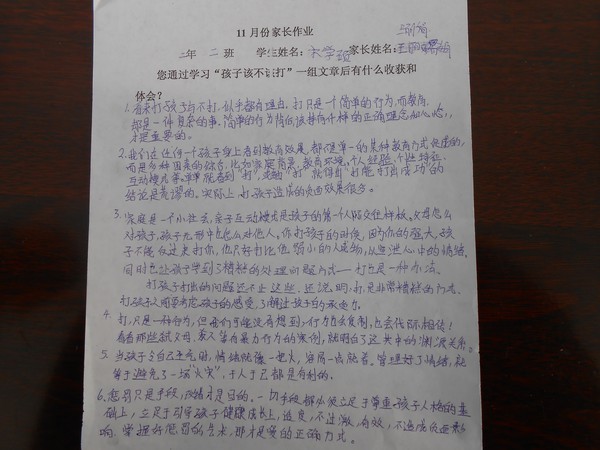 11月份家长作业
年 二 班 学生姓名: 家长姓名:
您通过学习“孩子该不该打”一组文章后有什么收获和
体会?
1. 看来打孩子与不打,似乎都有理由,打只是一个简单的行为,而教育
却是一件复杂的事,简单的行为背后该持有什样的正确理念和心态,
才是重要的。
2. 我们在任何一个孩子身上看到教育效果,都不是单一的某种教育方式促成的,
而是多种因素的综合,比如家庭背景、教育环境、个人经验、个性特征、
互动模式等。单单就看到“打”,或“打”就得出“打能打出成功”的
结论是荒谬的。实际上,打孩子造成的负面效果很多。
3. 家庭是一个小社会,亲子互动模式是孩子的第一个人际交往样板。父母怎么
对孩子,孩子无形中也怎么对他人。你打孩子的时候,因为你的强大,孩
子不能反过来打你,他只好打比他弱小的人或物,以发泄心中的情绪。
同时也让孩子学到了糟糕的处理问题方式——打也是一种办法。
打孩子打出的问题还不止这些,还说明,打是非常糟糕的方式。
打孩子人用常考虑孩子的感受,了解过孩子的承受力。
4. 打,只是一种行为,但我们可能没有想到,行为也会复制,也会代际相传!
看看那些说父母、家人等有暴力行为的案例,就明白了这其中的“渊源关系”。
5. 当孩子令自己生气时,情绪就像一把火,容易一点就着。管理好了情绪,就
等于避免了一场“火灾”,于人于己都是有利的。
6. 惩罚只是手段,改错才是目的。一切手段都必须立足于尊重孩子人格的基
础上,立足于引导孩子健康成长上,适度,不过激,有效,不造成负面影
响,掌握好惩罚的艺术,那才是爱的正确方式。